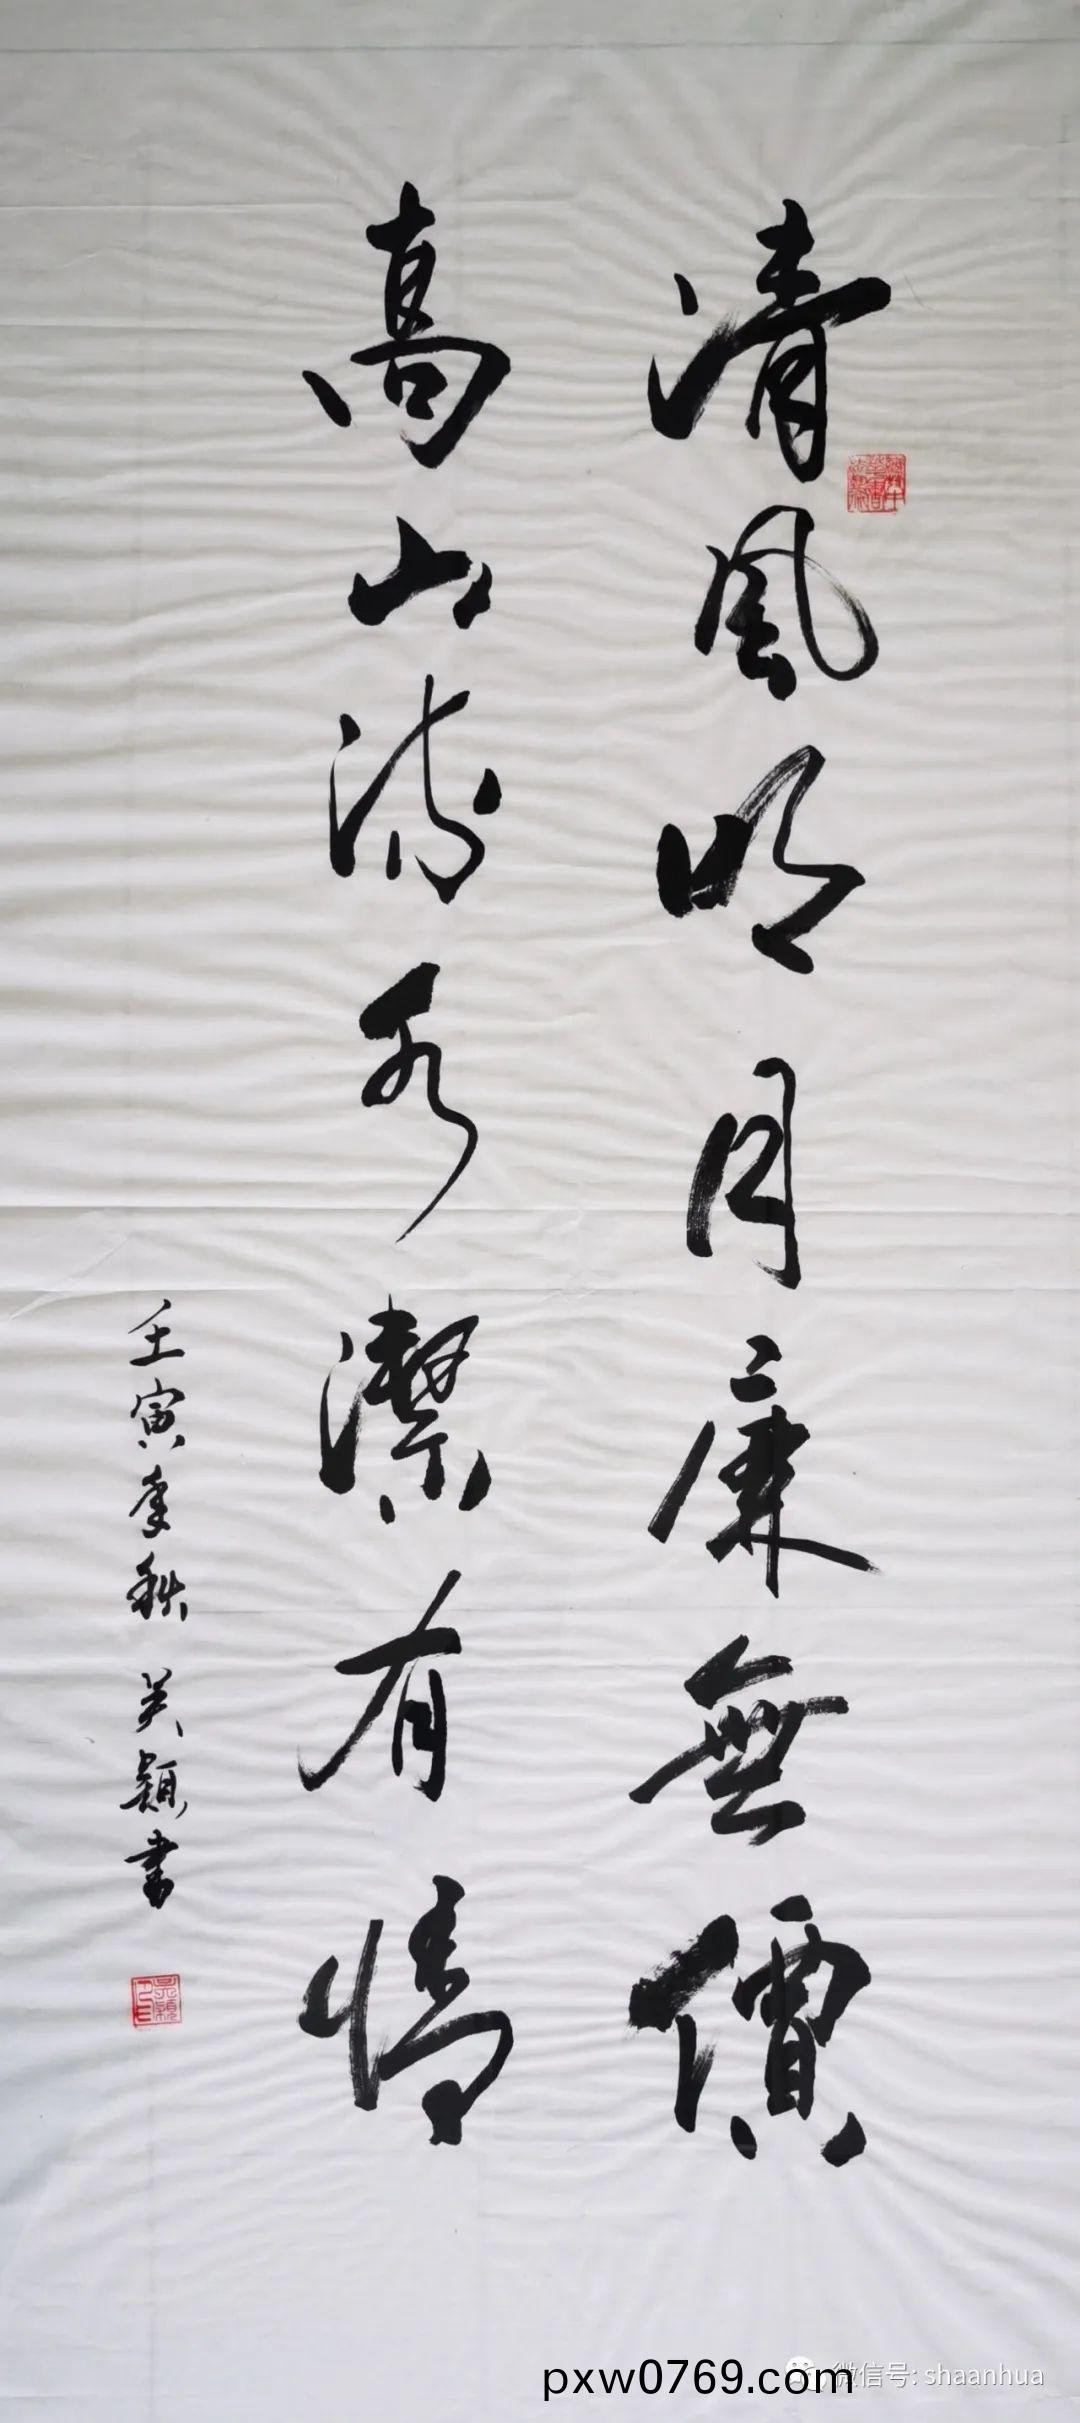 清風明月廉無價
高山流水潔有情
壬寅季秋 吴穎書
微信号: shaanhua
pxw0769.com